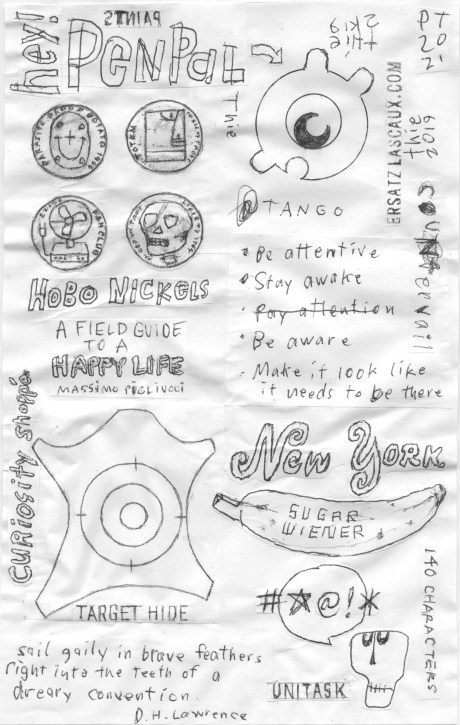 hey!
PAINTS
PENPAL
thie
2k19
PT
20
21
Thie
ERSATZLASCAUX.COM
thie
2019
TANGO
COUNTERVAIL
• Be attentive
• Stay awake
• Pay attention
• Be aware
• Make it look like
it needs to be there
HOBO NICKELS
A FIELD GUIDE
TO A
HAPPY LIFE
MASSIMO PIGLIUCCI
Curiosity shoppe
TARGET HIDE
NEW YORK
SUGAR
WIENER
#☆@!*
140 CHARACTERS
UNITASK
sail gaily in brave feathers
right into the teeth of a
dreary convention.
D.H. Lawrence